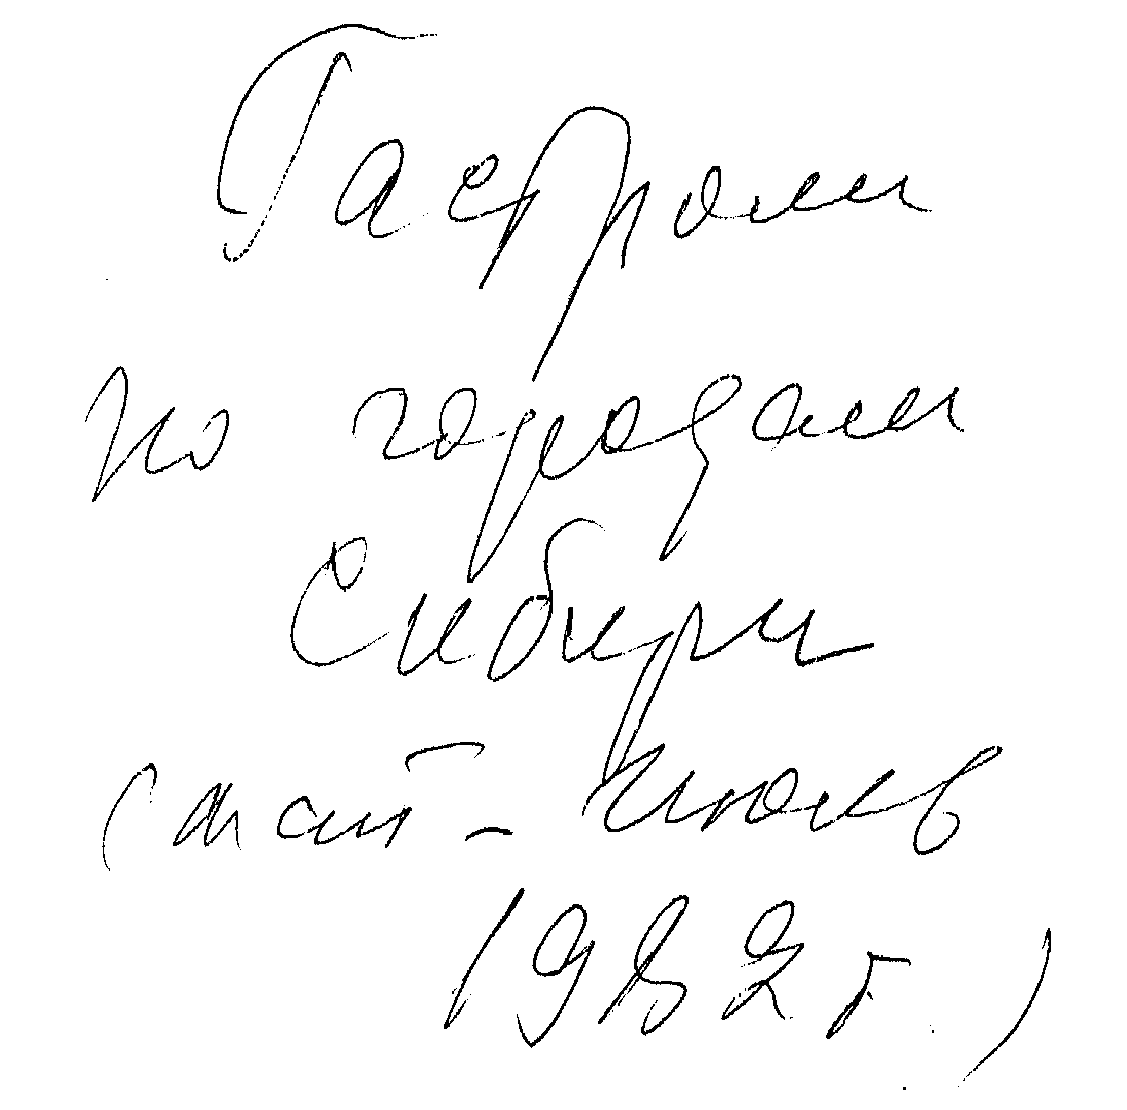 Гастроли
по городам
Сибири
(май - июль
1982 г.)